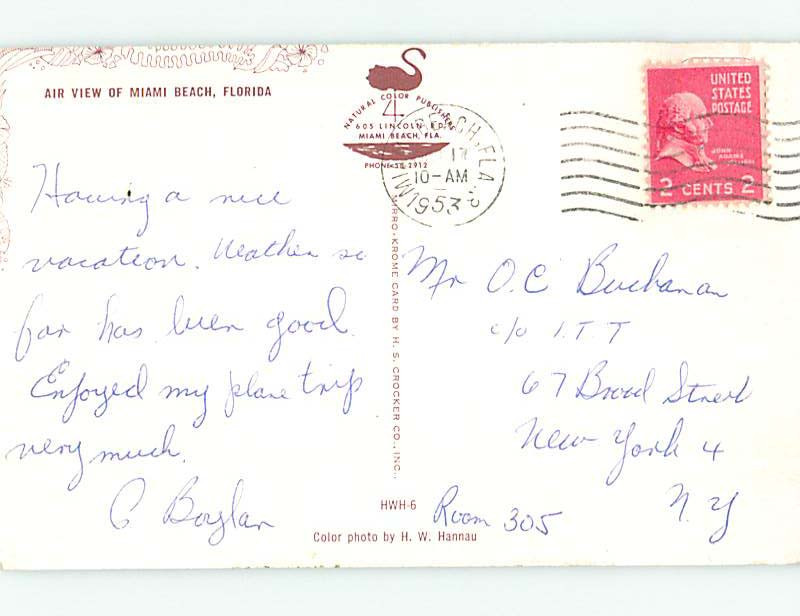 AIR VIEW OF MIAMI BEACH, FLORIDA
NATURAL COLOR PUBLISHERS
4
605 LINCOLN RD.
MIAMI BEACH, FLA.
PHONE 58 2912
BEACH, FLA.
MIAMI
17
10-AM
1953
UNITED
STATES
POSTAGE
JOHN
ADAMS
2 CENTS 2
Having a nice
vacation. Weather so
far has been good.
Enjoyed my plane trip
very much.
C Boylan
MIRRO-KROME CARD BY H. S. CROCKER CO., INC.,
Mr O.C Buchanan
c/o I.T.T
67 Broad Street
New York 4
N.Y
Room 305
HWH-6
Color photo by H. W. Hannau